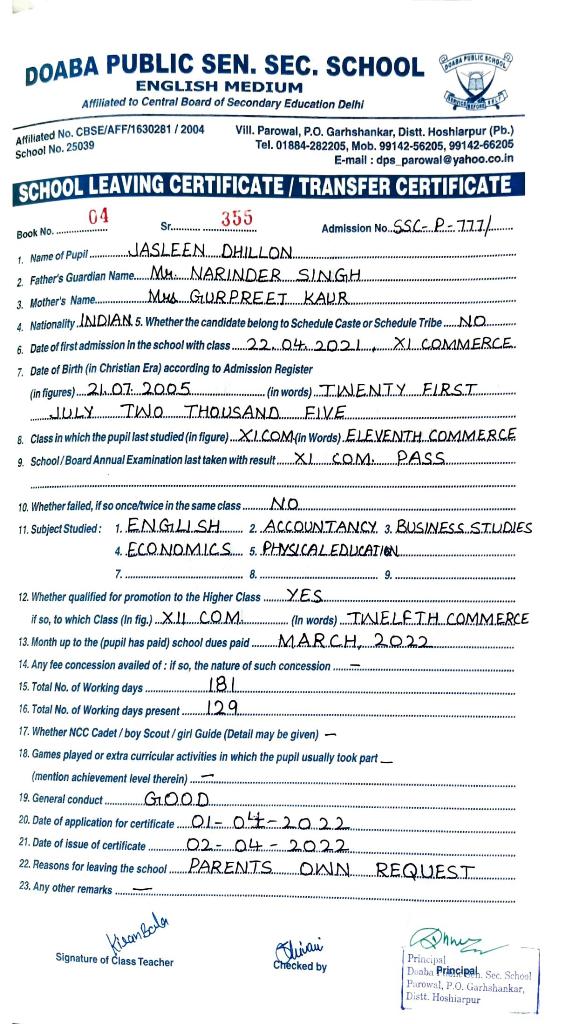 DOABA PUBLIC SEN. SEC. SCHOOL
ENGLISH MEDIUM
Affiliated to Central Board of Secondary Education Delhi
DOABA PUBLIC SCHOOL
Affiliated No. CBSE/AFF/1630281 / 2004
School No. 25039
Vill. Parowal, P.O. Garhshankar, Distt. Hoshiarpur (Pb.)
Tel. 01884-282205, Mob. 99142-56205, 99142-66205
E-mail : dps_parowal@yahoo.co.in
SCHOOL LEAVING CERTIFICATE / TRANSFER CERTIFICATE
Book No. 04 Sr. 355 Admission No. SSC-P-777/
1. Name of Pupil JASLEEN DHILLON
2. Father's Guardian Name Mr. NARINDER SINGH
3. Mother's Name Mrs GURPREET KAUR
4. Nationality INDIAN 5. Whether the candidate belong to Schedule Caste or Schedule Tribe NO
6. Date of first admission in the school with class 22.04.2021, XI COMMERCE
7. Date of Birth (in Christian Era) according to Admission Register
(in figures) 21.07.2005 (in words) TWENTY FIRST
JULY TWO THOUSAND FIVE
8. Class in which the pupil last studied (in figure) XI COM (in Words) ELEVENTH COMMERCE
9. School / Board Annual Examination last taken with result XI COM. PASS
10. Whether failed, if so once/twice in the same class NO
11. Subject Studied : 1. ENGLISH 2. ACCOUNTANCY 3. BUSINESS STUDIES
4. ECONOMICS 5. PHYSICAL EDUCATION
7. 8. 9.
12. Whether qualified for promotion to the Higher Class YES
if so, to which Class (In fig.) XII COM. (In words) TWELFTH COMMERCE
13. Month up to the (pupil has paid) school dues paid MARCH, 2022
14. Any fee concession availed of : if so, the nature of such concession —
15. Total No. of Working days 181
16. Total No. of Working days present 129
17. Whether NCC Cadet / boy Scout / girl Guide (Detail may be given) —
18. Games played or extra curricular activities in which the pupil usually took part —
(mention achievement level therein) —
19. General conduct GOOD
20. Date of application for certificate 01-04-2022
21. Date of issue of certificate 02-04-2022
22. Reasons for leaving the school PARENTS OWN REQUEST
23. Any other remarks —
Kiran Bala
Signature of Class Teacher
Checked by
Principal
Principal
Doaba Public Sen. Sec. School
Parowal, P.O. Garhshankar,
Distt. Hoshiarpur